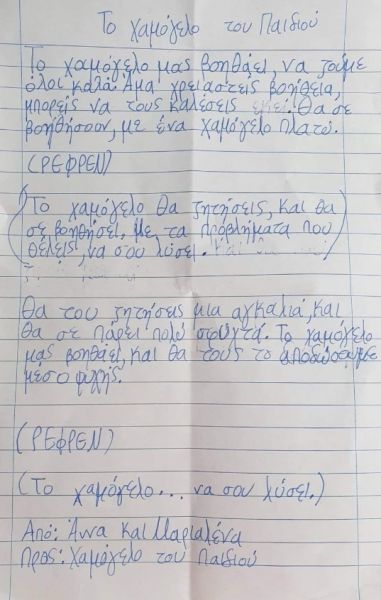 Το χαμόγελο του Παιδιού
Το χαμόγελο μας βοηθάει, να ζούμε
όλοι καλά. Άμα χρειαστείς βοήθεια,
μπορείς να τους καλέσεις εκεί. Θα σε
βοηθήσουν, με ένα χαμόγελο πλατύ.
(ΡΕΦΡΕΝ)
(Το χαμόγελο θα ζητήσεις, και θα
σε βοηθήσει, με τα προβλήματα που
θέλεις, να σου λύσει.
Θα του ζητήσεις μια αγκαλιά, και
θα σε πάρει πολύ σφιχτά. Το χαμόγελο
μας βοηθάει, και θα τους το αποδώσουμε
μεσο ψυχής.
(ΡΕΦΡΕΝ)
(Το χαμόγελο... να σου λύσει.)
Από: Άννα και Μαριαλένα
Προς: Χαμόγελο του Παιδιού